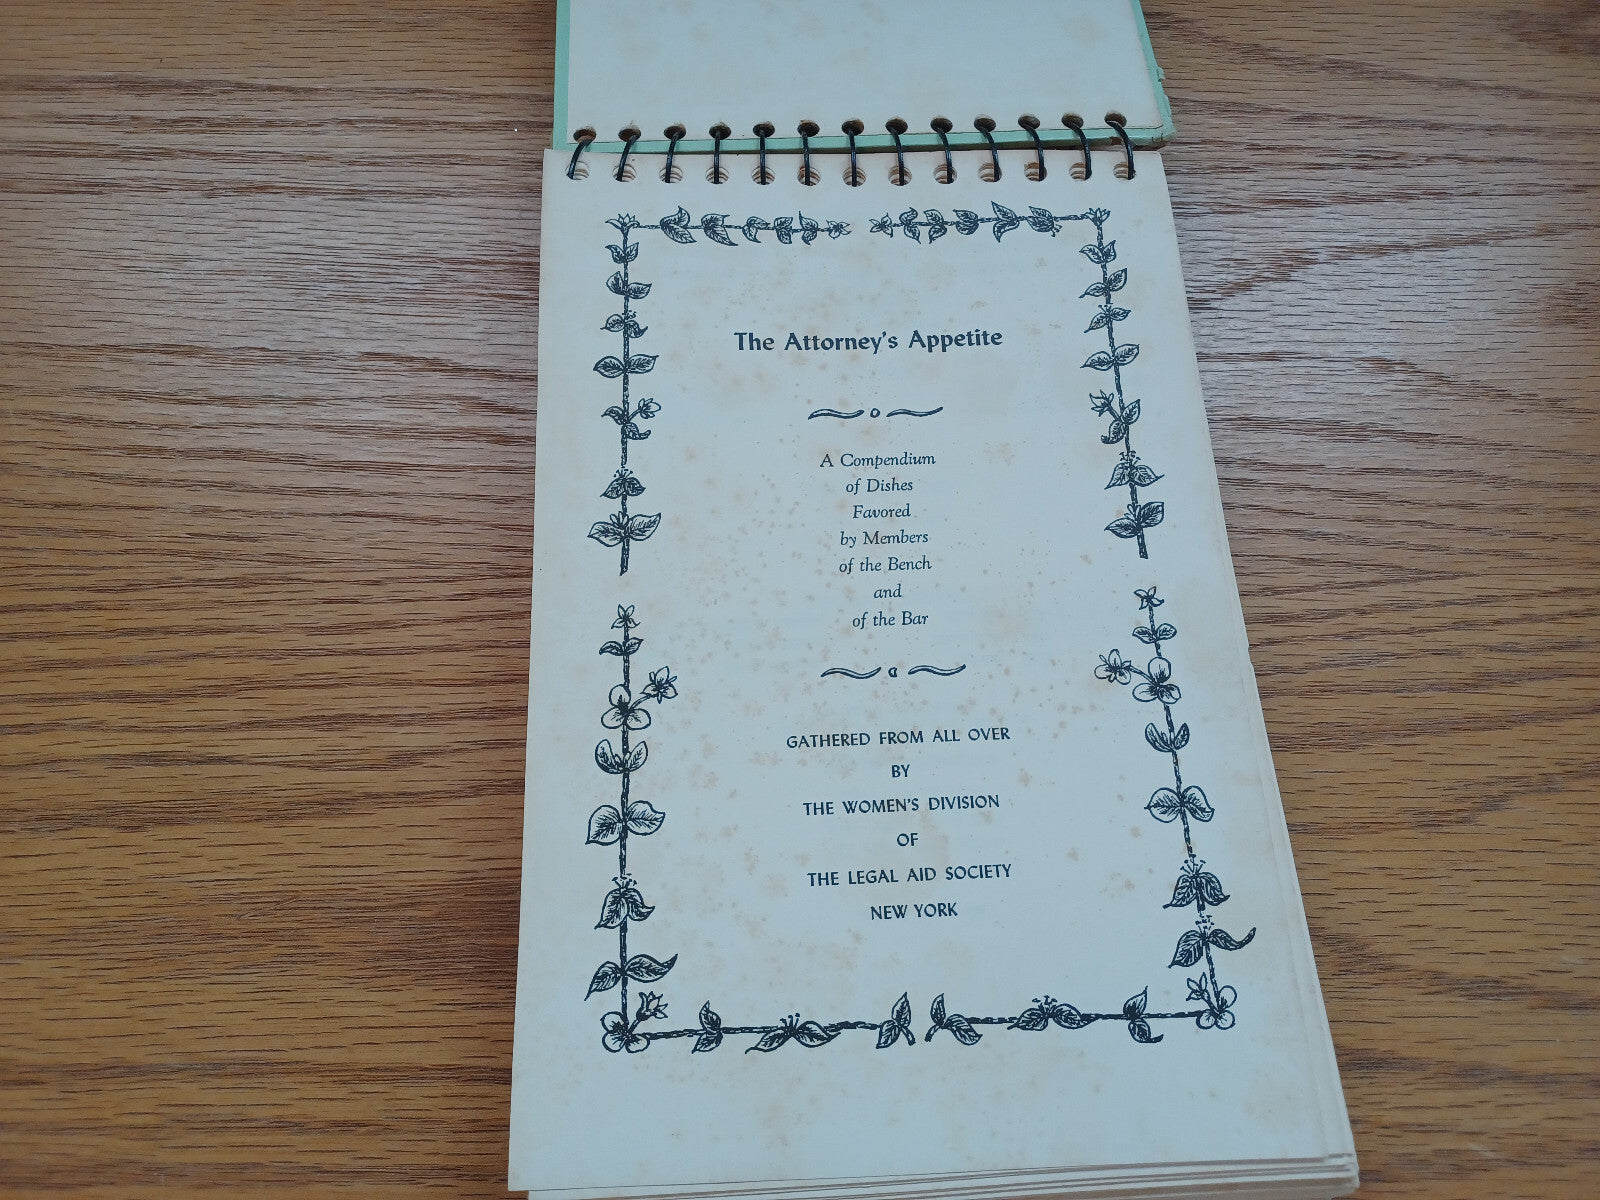 The Attorney's Appetite
A Compendium
of Dishes
Favored
by Members
of the Bench
and
of the Bar
GATHERED FROM ALL OVER
BY
THE WOMEN'S DIVISION
OF
THE LEGAL AID SOCIETY
NEW YORK